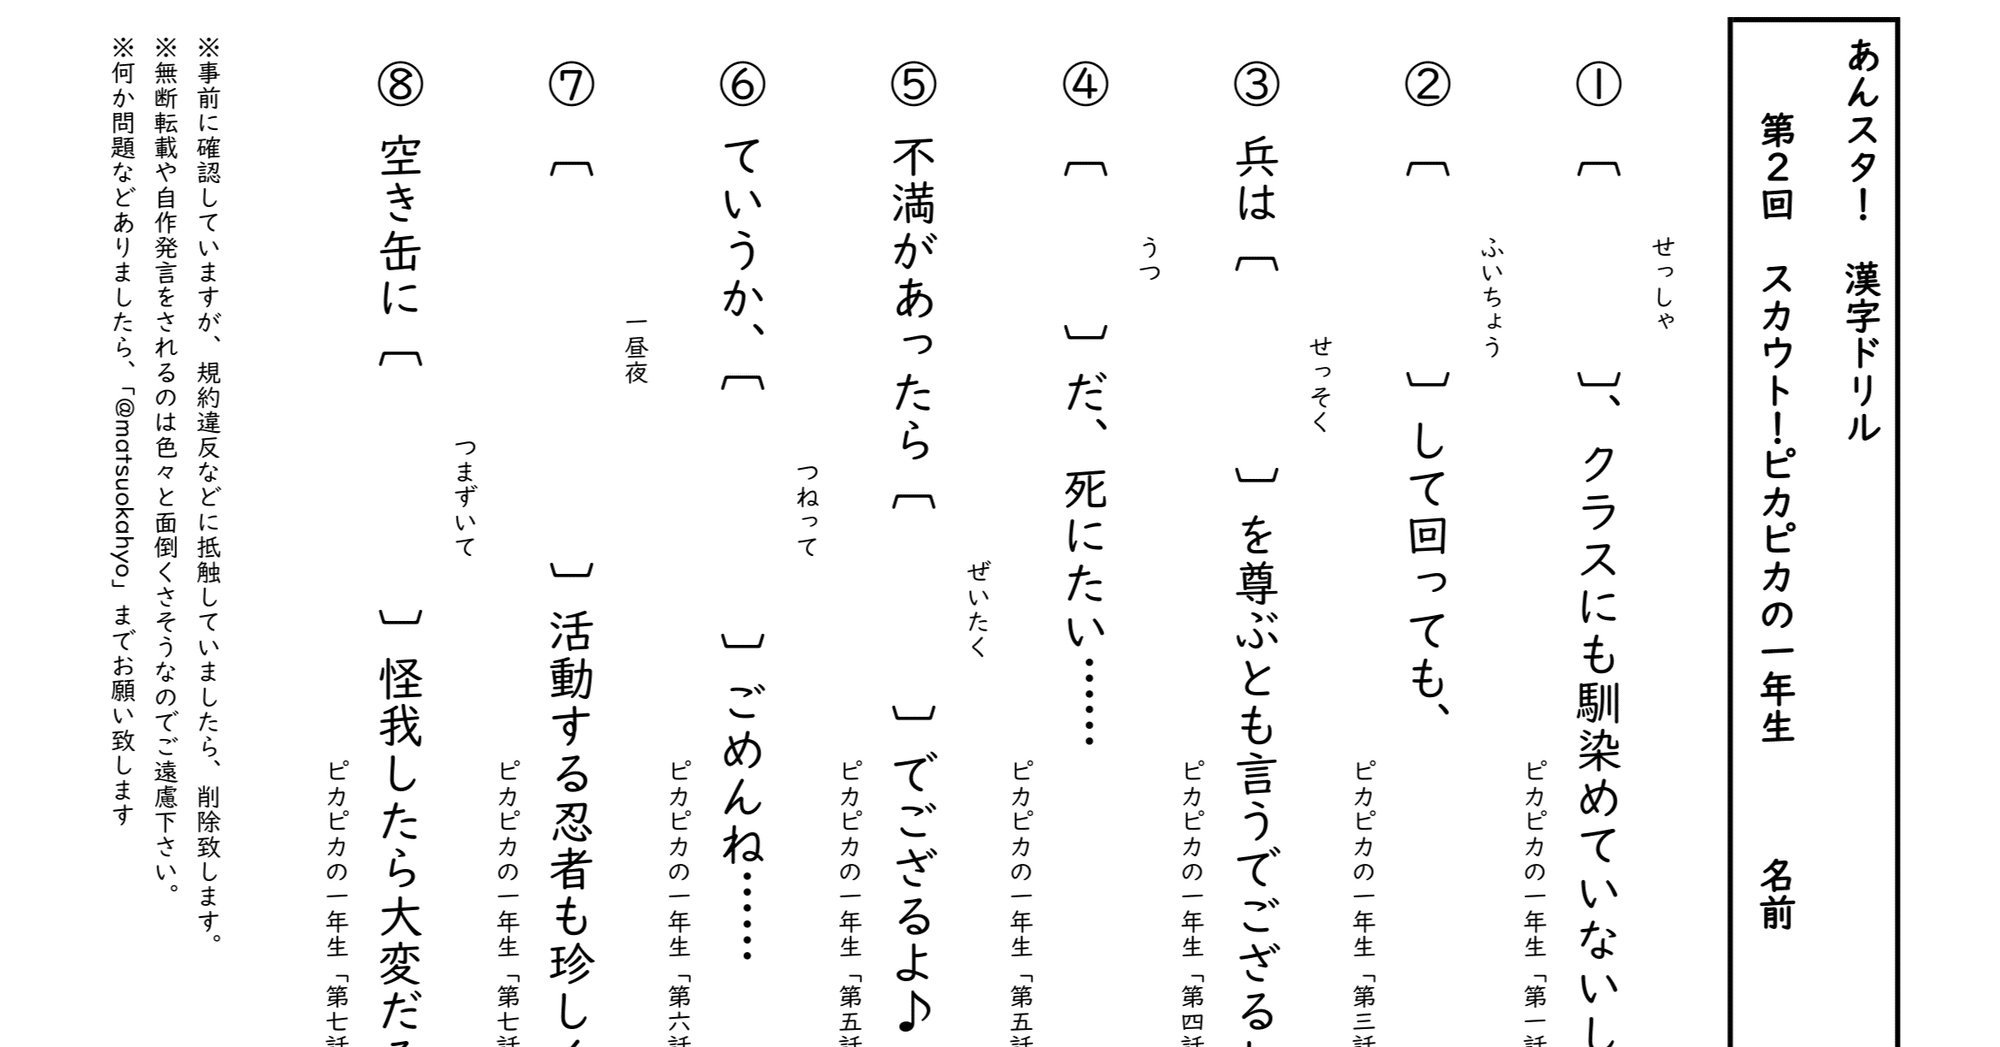 あんスタ！　漢字ドリル
第２回　スカウト！ピカピカの一年生　　名前
せっしゃ
①〔　　　　〕、クラスにも馴染めていないし
ピカピカの一年生「第一話
ふいちょう
②〔　　　　〕して回っても、
ピカピカの一年生「第三話
せっそく
③兵は〔　　　　〕を尊ぶとも言うでござる
ピカピカの一年生「第四話
うつ
④〔　　　〕だ、死にたい……
ピカピカの一年生「第五話
ぜいたく
⑤不満があったら〔　　　　〕でござるよ♪
ピカピカの一年生「第五話
つねって
⑥ていうか、〔　　　　　〕ごめんね……
ピカピカの一年生「第六話
一昼夜
⑦〔　　　　　　　　〕活動する忍者も珍し
ピカピカの一年生「第七話
つまずいて
⑧空き缶に〔　　　　　〕怪我したら大変だ
ピカピカの一年生「第七話
※事前に確認していますが、規約違反などに抵触していましたら、削除致します。
※無断転載や自作発言をされるのは色々と面倒くさそうなのでご遠慮下さい。
※何か問題などありましたら、「@matsuokahyo」までお願い致します